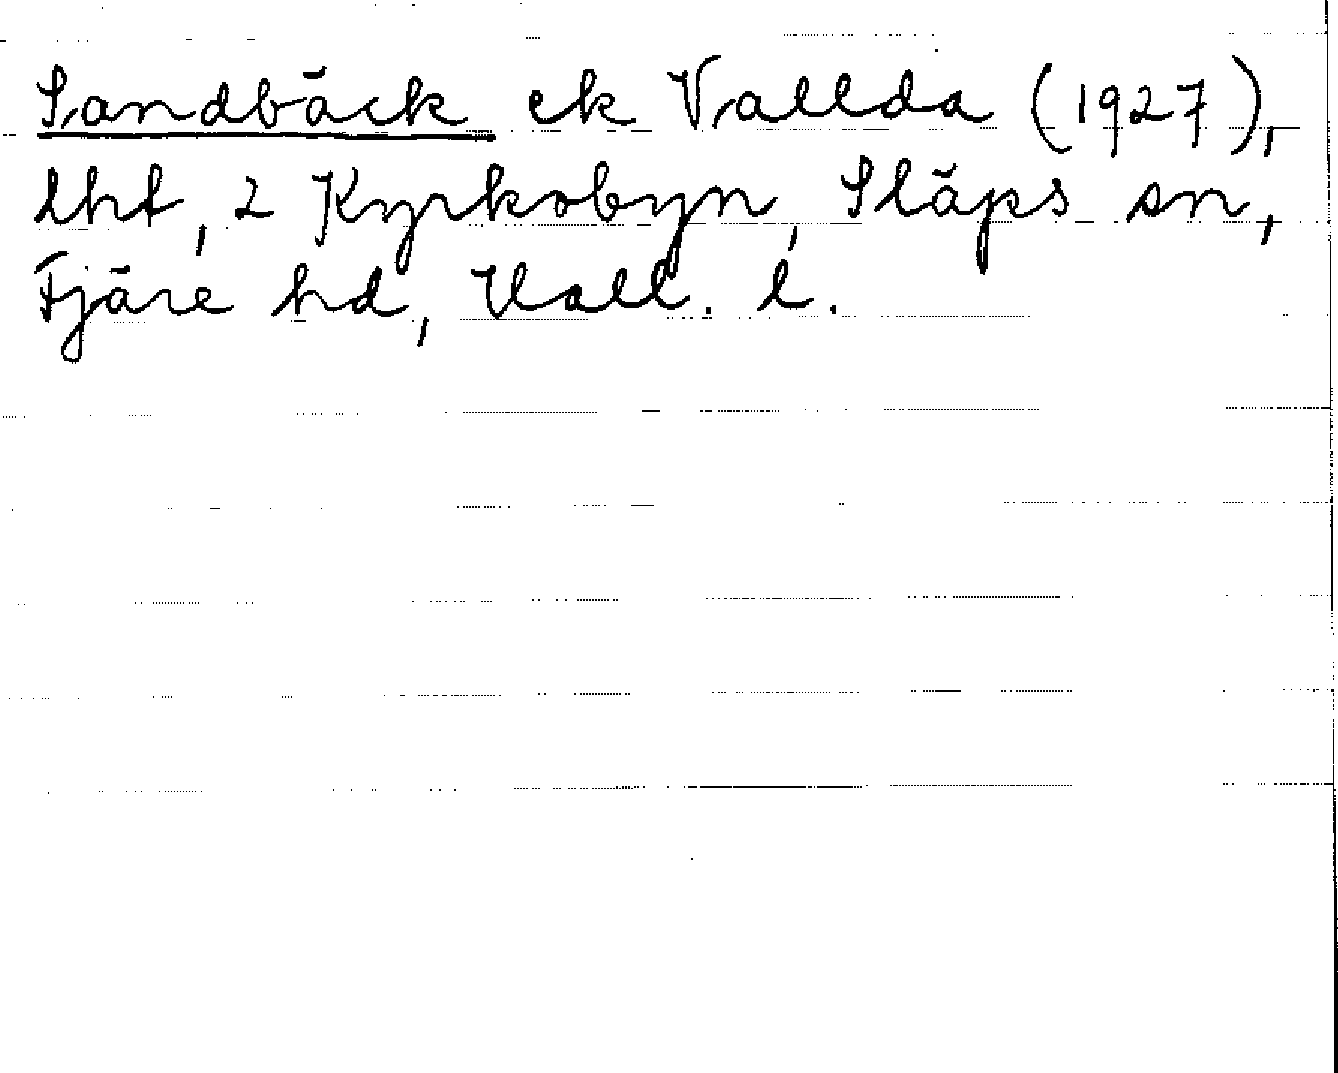 Sandbäck ek Vallda (1927),
lht, 2 Kyrkobyn, Släps sn,
Fjäre hd, Hall. l.